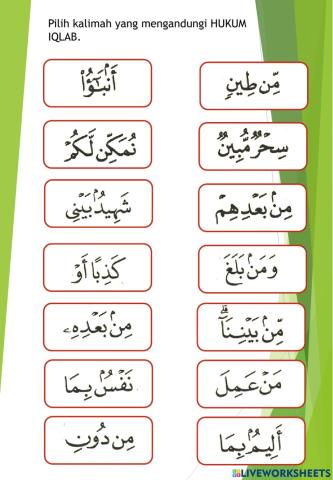 Pilih kalimah yang mengandungi HUKUM
IQLAB.
أَنۢبَـٰٓؤُا۟ مِّن طِينٍ
نُمَكِّن لَّكُمْ سِحْرٌ مُّبِينٌ
شَهِيدٌۢ بَيْنِى مِنۢ بَعْدِهِمْ
كَذِبًا أَوْ وَمَنۢ بَلَغَ
مِنۢ بَعْدِهِۦ مِّنۢ بَيْنِنَآ ۗ
نَفْسٌۢ بِمَا مَنْ عَمِلَ
مِن دُونِ أَلِيمٌۢ بِمَا
LIVEWORKSHEETS